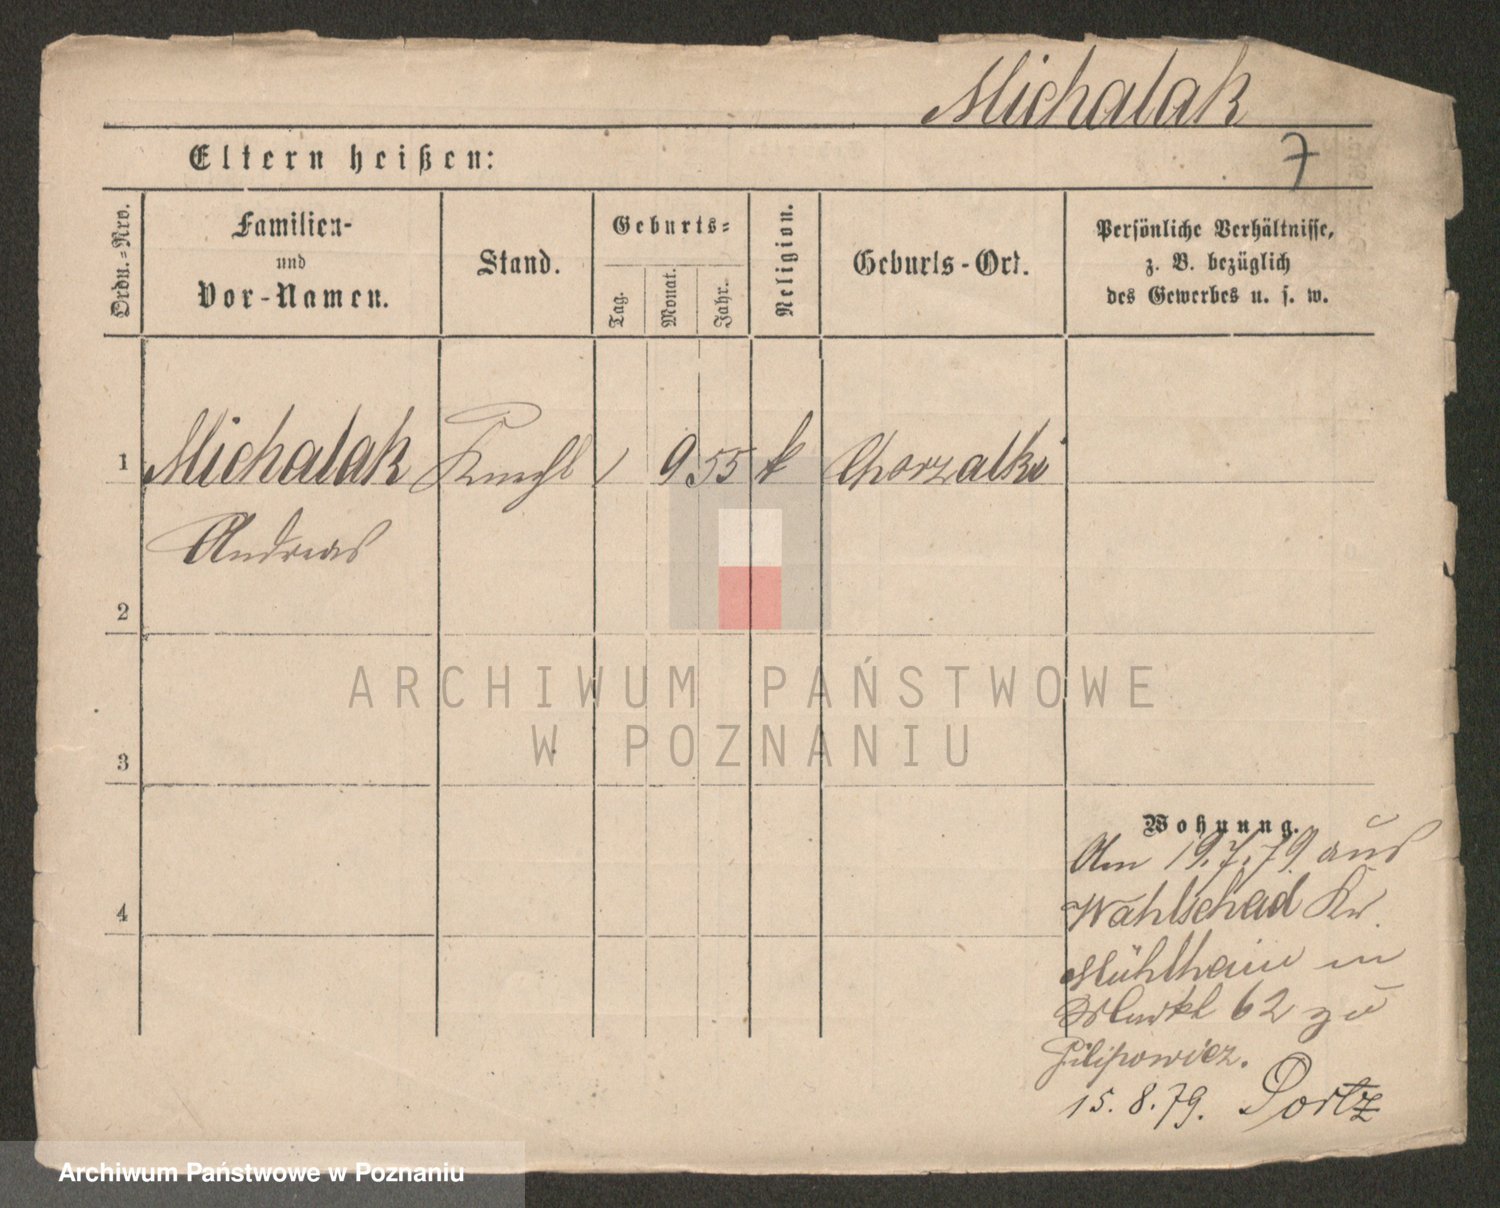 Michalak
7
Eltern heißen:
Ordn.=Nro.
Familien-
und
Vor-Namen.
Stand.
Geburts=
Tag.
Monat.
Jahr.
Religion.
Geburts-Ort.
Persönliche Verhältnisse,
z. B. bezüglich
des Gewerbes u. s. w.
1 Michalak Knecht / 9 55 k Chorzalki
Andreas
2
ARCHIWUM PAŃSTWOWE
W POZNANIU
3
Wohnung.
Am 19.7.79. aus
Wahlschad Kr.
4
Mühlhain in
62 zu
Filipowicz.
15.8.79. Portz
Archiwum Państwowe w Poznaniu